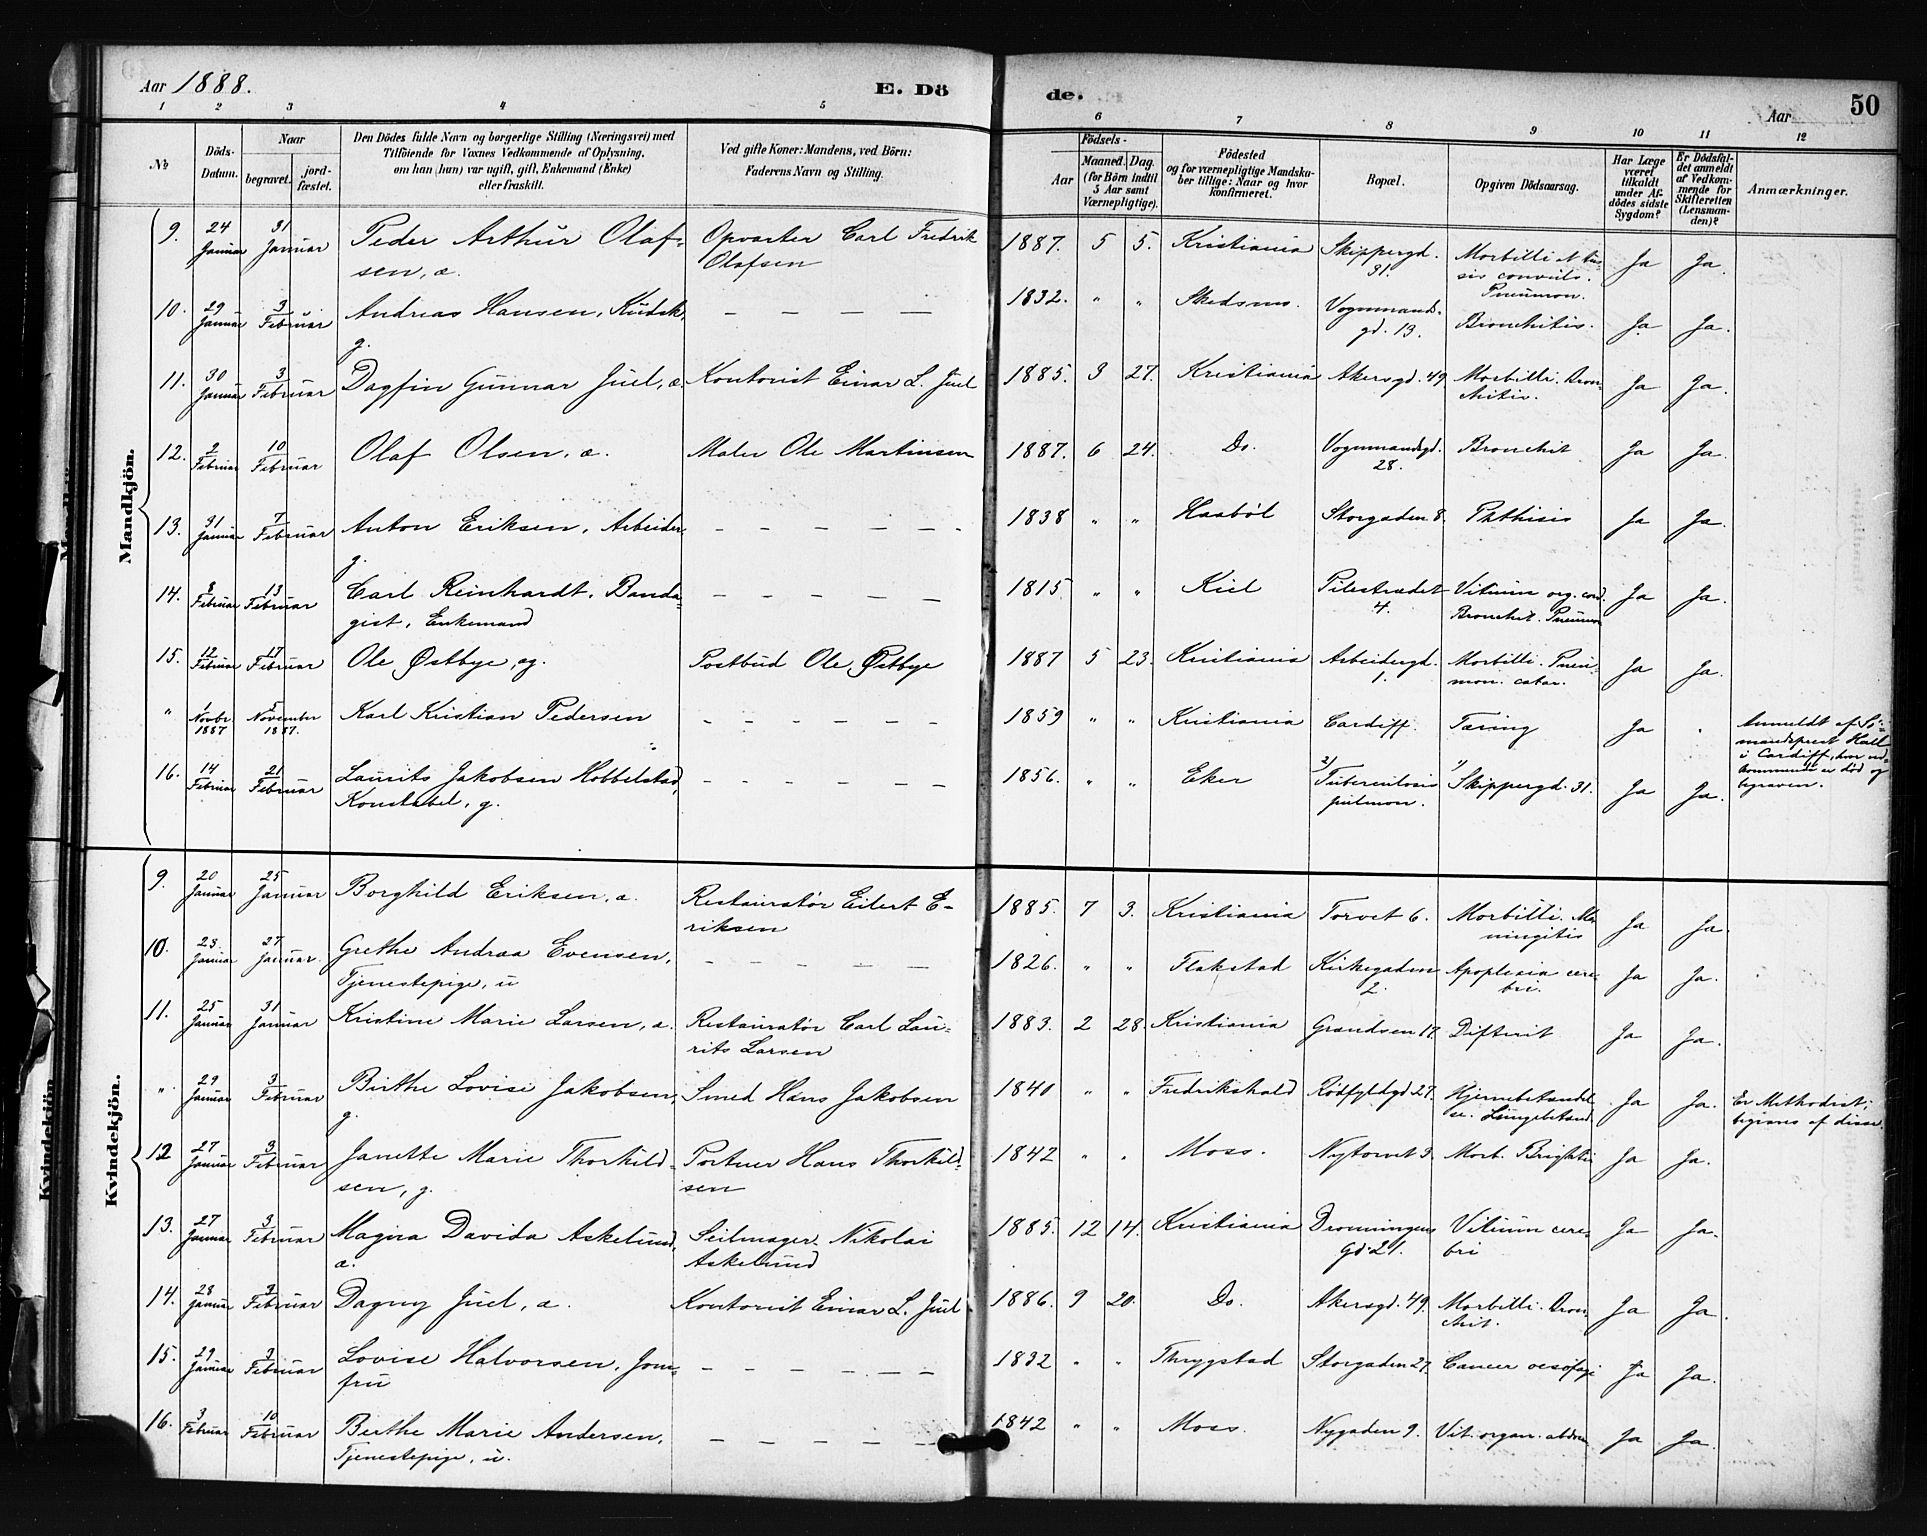 Aar 1888.
E. Dö
de.
Aar
50
1 2 3 4 5 6 7 8 9 10 11 12
No
Döds-Datum.
Naar
begravet.
jord-fæstet.
Den Dödes fulde Navn og borgerlige Stilling (Næringsvei) med
Tilföiende for Voxnes Vedkommende af Oplysning,
om han (hun) var ugift, gift, Enkemand (Enke)
eller fraskilt.
Ved gifte Koner: Mandens, ved Börn:
Faderens Navn og Stilling.
Födsels-
Aar
Maaned. Dag.
(for Börn indtil
5 Aar samt
Værnepligtige).
Födested
og for værnepligtige Mandska-
ber tillige: Naar og hvor
konfirmeret.
Bopæl.
Opgiven Dödsaarsag.
Har Læge
været
tilkaldt
under Af-
dödes sidste
Sygdom?
Er Dödsfal-
det anmeldt
af Vedkom-
mende for
Skifteretten
(Lensman-
den)?
Anmærkninger.
Mandkjön.
9. 24 Januar 31 Januar Peder Arthur Olaf- Opvarter Carl Fredrik 1887. 5 5. Kristiania Skippergd. Morbilli Ja Ja.
sen, æ. Olafsen 31.
Pneumon.
10. 29 Januar 3 Februar Andreas Hansen, Kudsk, — — — — 1832. " " Skedsmo. Vognmands- Bronchitis. Ja Ja.
g. gd. 13.
11. 30 Januar 3 Februar Dagfin Gunnar Juel, æ. Kontorist Einar L. Juel 1885. 3 27. Kristiania Akersgd. 49 Morbilli. Bron- Ja Ja.
chitis.
12. 2 Februar 10 Februar Olaf Olsen, æ. Maler Ole Martinsen 1887. 6 24. Do. Vognmandsgd. Bronchit Ja Ja.
28.
13. 31 Januar 7 Februar Anton Eriksen, Arbeider — — — — — 1838 " " Haabøl Storgaden 8. Phthisis Ja Ja.
g.
14. 8 Februar 13 Februar Carl Reinhardt, Banda- — — — — — 1815. " " Kiel Pilestrædet Vitium org. cord. Ja Ja.
gist, Enkemand 4. Bronchit. Pneumon
15. 12 Februar 17 Februar Ole Østbye, æg. Postbud Ole Østbye 1887 5 23. Kristiania Arbeidergd. Morbilli. Pneu- Ja Ja.
1. mon. catar.
" 1 Novbr 1887 November 1887. Karl Kristian Pedersen — — — — — 1859 " " Kristiania Cardiff. Tæring Ja . Anmeldt af Sö-
mandsprest Hall
i Cardiff, hvor ved-
kommende er død og
begraven.
16. 14 Februar 21 Februar Laurits Jakobsen Hobbelstad, — — — — — 1856. " " Eker 2) Tuberculosis 1) Skippergd. 31. Ja Ja.
Konstabel, g. pulmon.
Kvindekjön.
9. 20 Januar 25 Januar Borghild Eriksen, æ. Restauratør Eilert E- 1885. 7 3. Kristiania Torvet 6. Morbilli. Me- Ja Ja.
riksen ningitis
10. 23. Januar 27 Januar. Grethe Andrea Evensen, — — — — — 1826. " " Flakstad Kirkegaden Apoplexia cere- Ja Ja.
Tjenestepige, u 2. bri.
11. 25 Januar 31 Januar Kristine Marie Larsen, æ. Restauratør Carl Lau- 1883. 2 28. Kristiania Grændsen 17. Difterit Ja Ja.
rits Larsen
" 29 Januar 3 Februar Birthe Lovise Jakobsen, Smed Hans Jakobsen 1840 " " Fredrikshald Rödfyldgd 27. Hjernebetændel- Ja Ja. Er Methodist;
g. se. Lungebetænd. begraves af disse.
12 27 Januar 3 Februar Janette Marie Thorkild- Portner Hans Thorkild- 1842 " " Moss. Nytorvet 3. Morb. Brightii Ja Ja.
sen, g. sen
13. 27 Januar 3 Februar Magna Davida Askelund, Seilmager Nikolai 1885. 12 14. Kristiania Dronningens Vitium cere- Ja Ja.
æ. Askelund Gd. 21. bri
14. 28 Januar 3 Februar Dagny Juel, æ. Kontorist Einar L. Juel 1886. 9 20. Do. Akersgd. 49. Morbilli. Bron- Ja Ja.
chit.
15. 29 Januar 3 Februar Lovise Halvorsen, Jom- — — — — — 1832 " " Thrygstad Storgaden 27. Cancer oesofagi Ja Ja.
fru
16. 3 Februar 10 Februar Berthe Marie Andersen, — — — — — 1842 " " Moss. Nygaden 9. Vit. organ. abdom Ja Ja.
Tjenestepige, u.